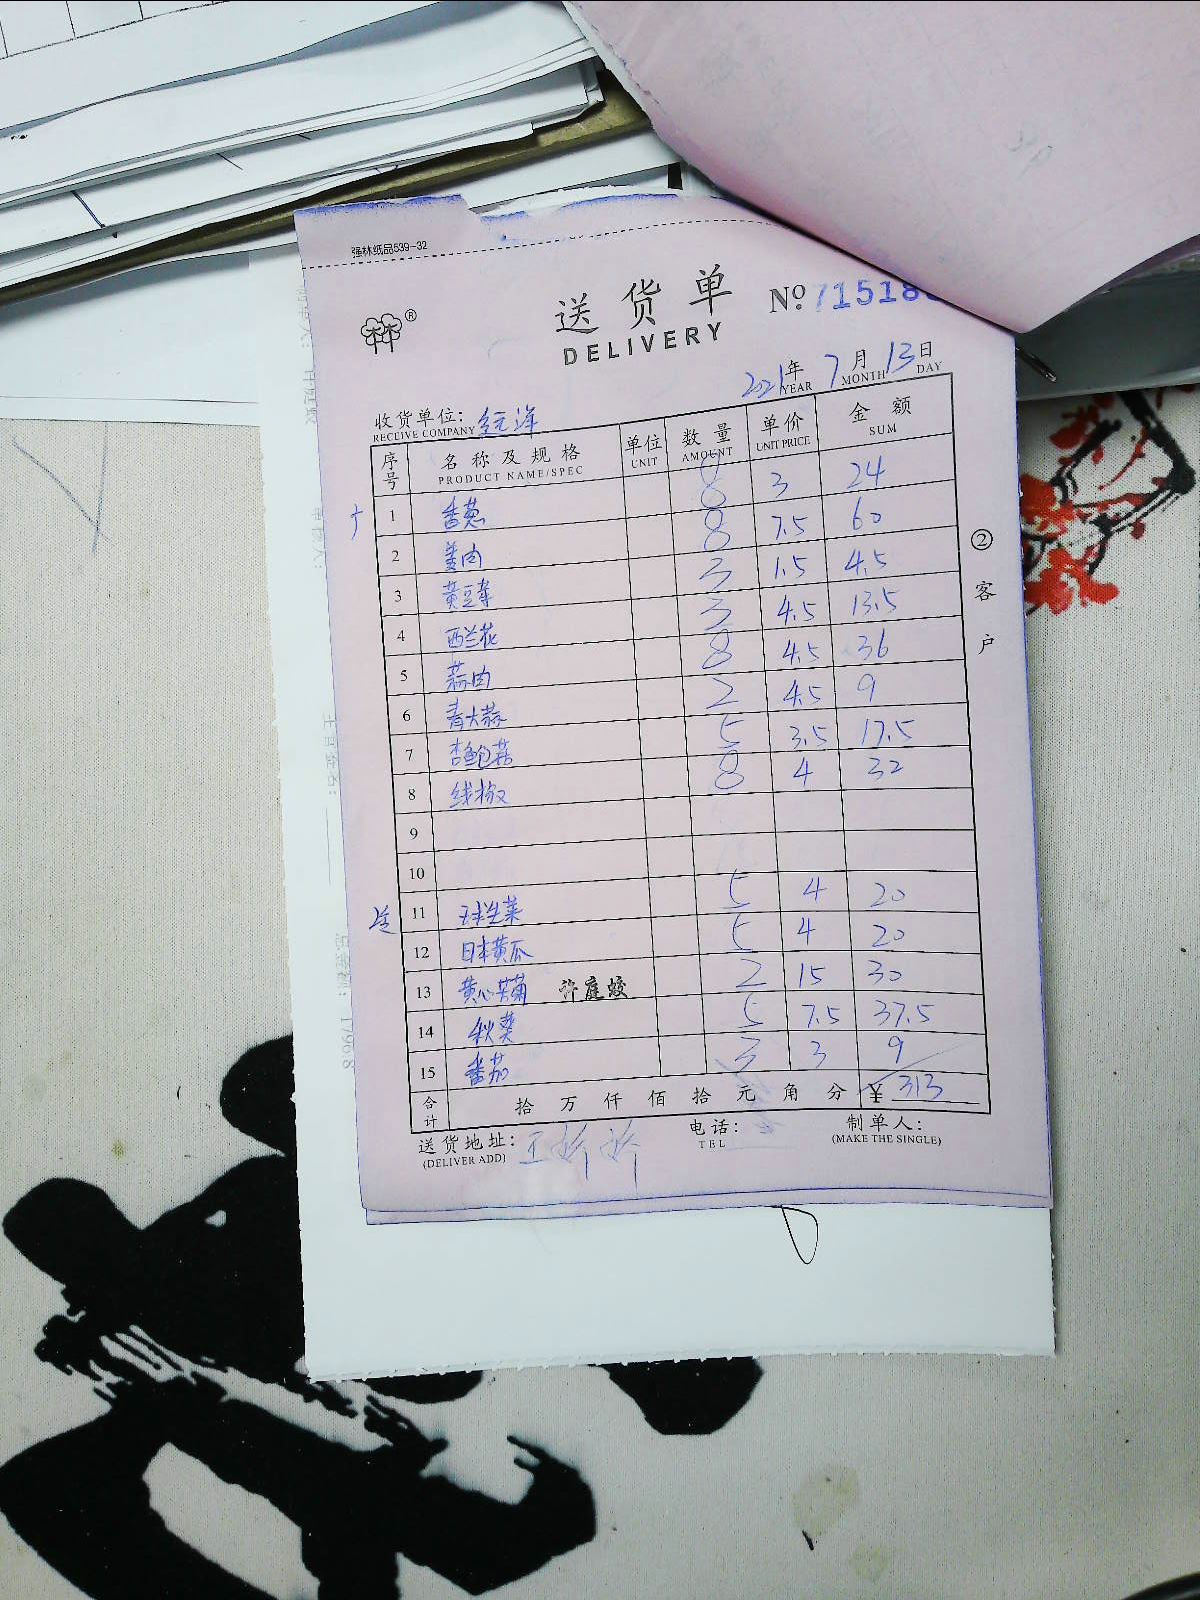 强林纸品539-32
送货单
DELIVERY
№ 71518
2021年 7月 13日
YEAR MONTH DAY
收货单位:
RECEIVE COMPANY
序号 名称及规格 单位 数量 单价 金额
PRODUCT NAME/SPEC UNIT AMOUNT UNIT PRICE SUM
1 香葱 8 3 24
2 姜肉 8 7.5 60
3 黄豆芽 3 1.5 4.5
4 西兰花 3 4.5 13.5
5 蒜肉 8 4.5 36
6 青大蒜 2 4.5 9
7 杏鲍菇 5 3.5 17.5
8 线椒 8 4 32
9
10
11 球生菜 5 4 20
12 日本黄瓜 5 4 20
13 黄心 许庭蛟 2 15 30
14 秋葵 5 7.5 37.5
15 番茄 3 3 9
合计 拾 万 仟 佰 拾 元 角 分 ¥ 313
送货地址: 电话: 制单人:
(DELIVER ADD) TEL (MAKE THE SINGLE)
②客户